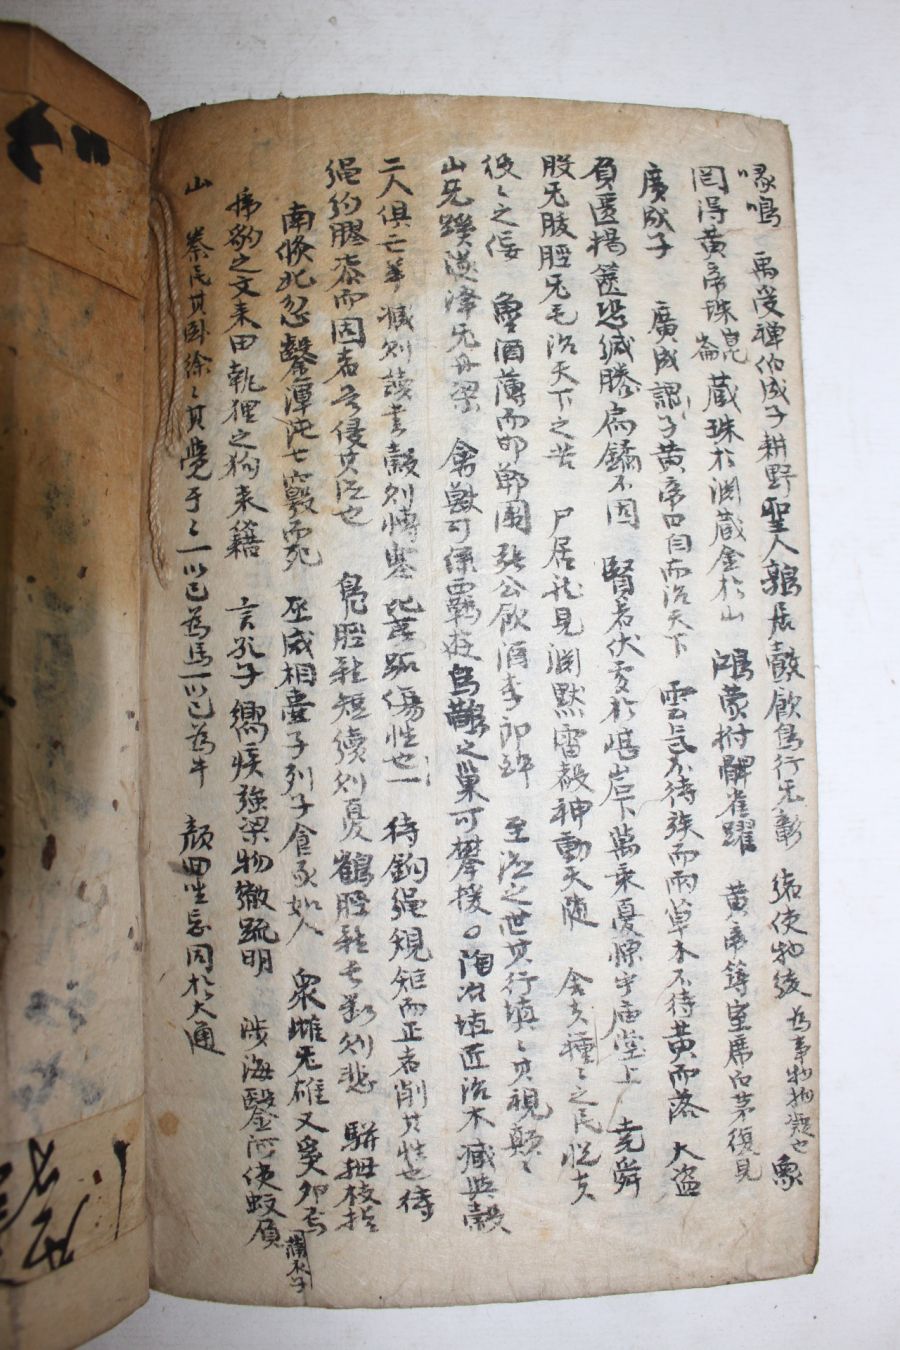 喙鳴 禹受禅伯成子耕野聖人鶉居鷇飮鳥行无彰 緒使物絃為事物物碍也象
罔得黃帝珠崑崙 藏珠於渊藏金於山 鴻蒙拊髀雀躍 黃帝築室席白茅復見
廣成子 廣成謂子黃帝曰自而治天下 雲气不待族而雨草木不待黃而落 大盜
負匱揭篋恐緘縢扃鐍不固 賢者伏處於嵁岩下萬乘憂慄乎庙堂上 尭舜
股无胈脛无毛治天下之苦 尸居龍見渊默雷聲神動天隨 舍夫種〻之民悅夫
役〻之佞 魯酒薄而邯鄲圍張公飮酒李即醉 至德之世其行填〻其視顛〻
山无蹊澤无舟梁 禽獸可係羈遊鳥鵲之巢可攀援 陶治埴匠治木 臧與穀
二人俱亡羊臧則讀書穀則慱塞 跖傷性也一 待鉤繩規矩而正者削其性也待
繩約膠漆而固者是侵其德也 鳧脛雖短續則憂鶴脛雖長斷則悲 駢拇枝指
南倏北忽鑿渾沌七竅而死 巫咸相壺子列子食豕如人 衆雌无雄又奚卵焉
虎豹之文来田執狸之狗来藉 言孔子 疾強梁物徹疏明 涉海鑿河使蚊負
山 泰氏其臥徐〻其覺于〻一以己為馬一以己為牛 顏回坐忘同於大通